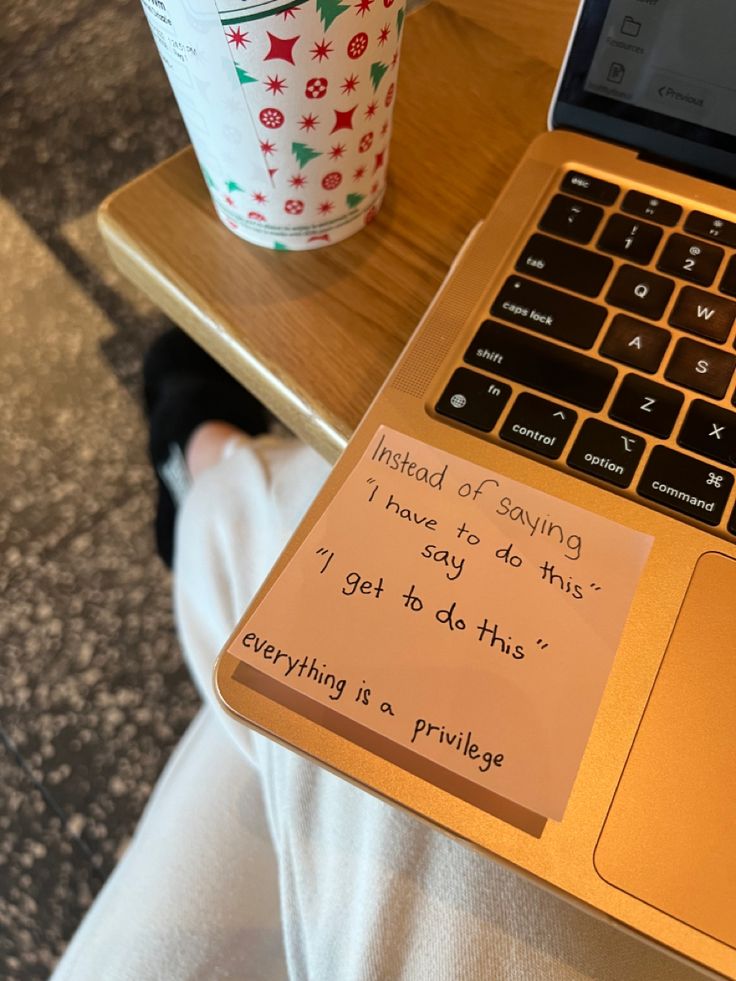 1:24:51 PM
Resources
Previous
esc
F1
F2
~
`
!
1
@
2
tab
Q
W
caps lock
A
S
shift
Z
X
fn
control
option
command
Instead of saying
"I have to do this"
say
"I get to do this"
everything is a privilege